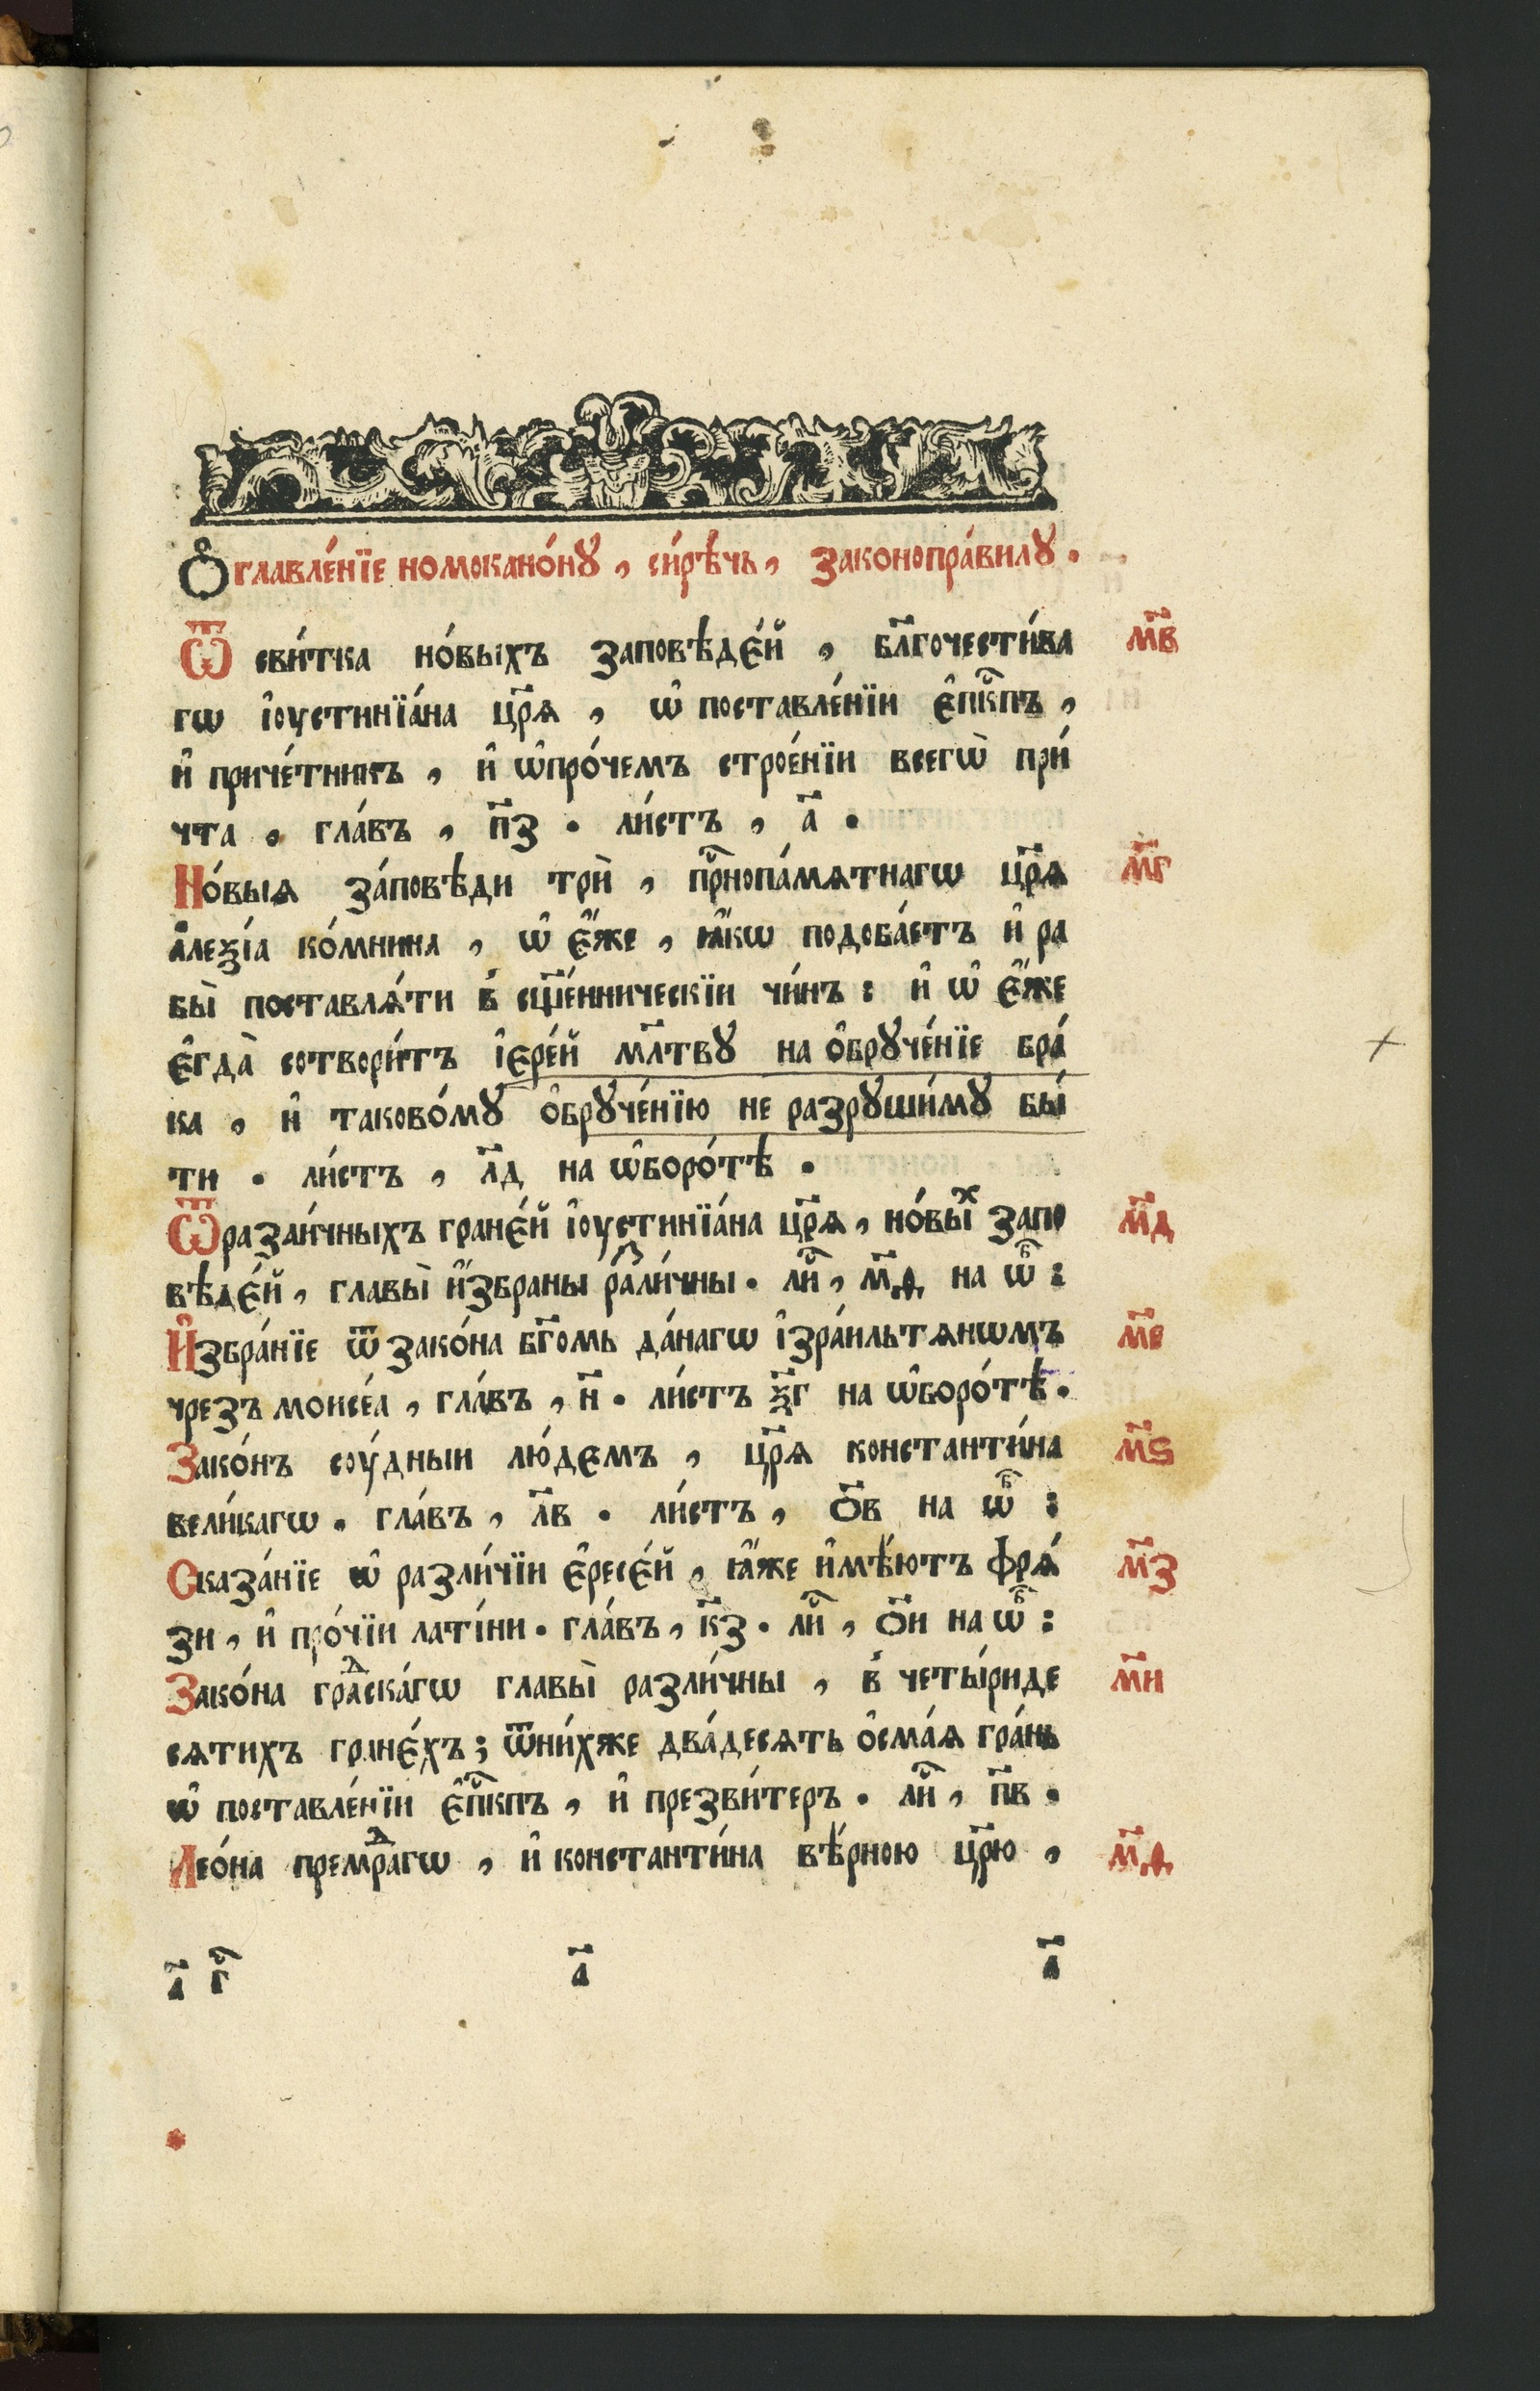 Ѻ҆главле́нїе номокано́нꙋ, си́рѣчь, законопра́вилꙋ.
Ѿ сви́тка но́выхъ заповѣде́й, бл҃гочести́ва мв҃
гѡ і҆оустинїа́на цр҃ѧ, ѡ҆ поставле́нїи є҆пⷭ҇кпъ,
и҆ приче́тникъ, и҆ ѡ҆про́чемъ строе́нїи всегѡ̀ при́
чта. гла́въ, пз҃. ли́стъ, а҃.
Но́выѧ за́повѣди трѝ, прⷭ҇нопа́мѧтнагѡ цр҃ѧ мг҃
а҆леѯі́а ко́мнина, ѡ҆ є҆́же, ꙗ҆́кѡ подоба́етъ и҆ ра
бы̀ поставлѧ́ти в̾ сщ҃е́нническїи чи́нъ: и҆ ѡ҆ є҆́же
є҆гда̀ сотвори́тъ і҆ере́й мл҃твꙋ на ѻ҆брꙋче́нїе бра́
ка, и҆ таково́мꙋ ѻ҆брꙋче́нїю не разрꙋши́мꙋ бы́
ти. ли́стъ, лд҃ на ѡ҆боро́тѣ.
Ѿразли́чныхъ гране́й і҆оустинїа́на цр҃ѧ, но́выⷯ запо мд҃
вѣде́й, главы̀ и҆́збраны раⷥли́чны. лиⷭ҇, мѳ҃ на ѡ҆ⷠ:
И҆збра́нїе ѿ зако́на бг҃омь да́нагѡ і҆зра́ильтѧнѡмъ ме҃
чрезъ моисе́а, гла́въ, н҃. ли́стъ ѯг҃ на ѡ҆боро́тѣ.
Зако́нъ соу́дныи лю́демъ, цр҃ѧ константи́на мѕ҃
вели́кагѡ. гла́въ, лв҃. ли́стъ, ѻв҃ на ѡ҆ⷠ:
Сказа́нїе ѡ҆ разли́чїи є҆ресе́й, ꙗ҆́же и҆мѣ́ютъ фрѧ́ мз҃
зи, и҆ про́чїи латі́ни. гла́въ, кз҃. лиⷭ҇, ѻи҃ на ѡ҆ⷠ:
Зако́на граⷣска́гѡ главы̀ разли́чны, в̾ четы́риде ми҃
сѧтихъ гране́хъ; ѿни́хже два́десѧть ѻ҆сма́ѧ гра́нь
ѡ҆ поставле́нїи є҆пⷭ҇кпъ, и҆ презви́теръ. лиⷭ҇, пв҃.
Лео́на премрⷣагѡ, и҆ константи́на вѣ́рною цр҃ю, мѳ҃
а҃ гⷭ҇ а҃ а҃